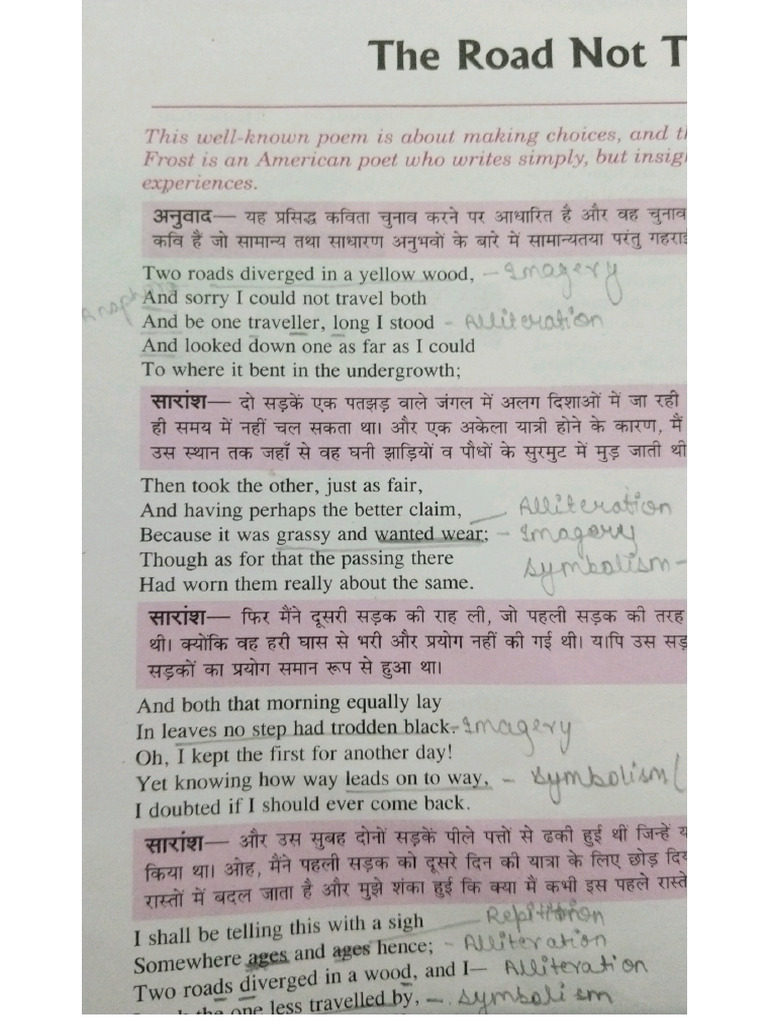 The Road Not T
This well-known poem is about making choices, and th
Frost is an American poet who writes simply, but insig
experiences.
अनुवाद— यह प्रसिद्ध कविता चुनाव करने पर आधारित है और वह चुनाव
कवि हैं जो सामान्य तथा साधारण अनुभवों के बारे में सामान्यतया परंतु गहराई
Two roads diverged in a yellow wood, – Imagery
And sorry I could not travel both
And be one traveller, long I stood - Alliteration
And looked down one as far as I could
To where it bent in the undergrowth;
सारांश— दो सड़कें एक पतझड़ वाले जंगल में अलग दिशाओं में जा रही
ही समय में नहीं चल सकता था। और एक अकेला यात्री होने के कारण, मैं
उस स्थान तक जहाँ से वह घनी झाड़ियों व पौधों के सुरमुट में मुड़ जाती थी
Then took the other, just as fair,
And having perhaps the better claim, Alliteration
Because it was grassy and wanted wear; – Imagery
Though as for that the passing there Symbolism –
Had worn them really about the same.
सारांश— फिर मैंने दूसरी सड़क की राह ली, जो पहली सड़क की तरह
थी। क्योंकि वह हरी घास से भरी और प्रयोग नहीं की गई थी। यापि उस सड़
सड़कों का प्रयोग समान रूप से हुआ था।
And both that morning equally lay
In leaves no step had trodden black. – Imagery
Oh, I kept the first for another day!
Yet knowing how way leads on to way, – Symbolism (
I doubted if I should ever come back.
सारांश— और उस सुबह दोनों सड़कें पीले पत्तों से ढकी हुई थीं जिन्हें
किया था। ओह, मैंने पहली सड़क को दूसरे दिन की यात्रा के लिए छोड़ दिय
रास्तों में बदल जाता है और मुझे शंका हुई कि क्या मैं कभी इस पहले रास्ते
I shall be telling this with a sigh Repitition
Somewhere ages and ages hence; - Alliteration
Two roads diverged in a wood, and I— Alliteration
the one less travelled by, – Symbolism